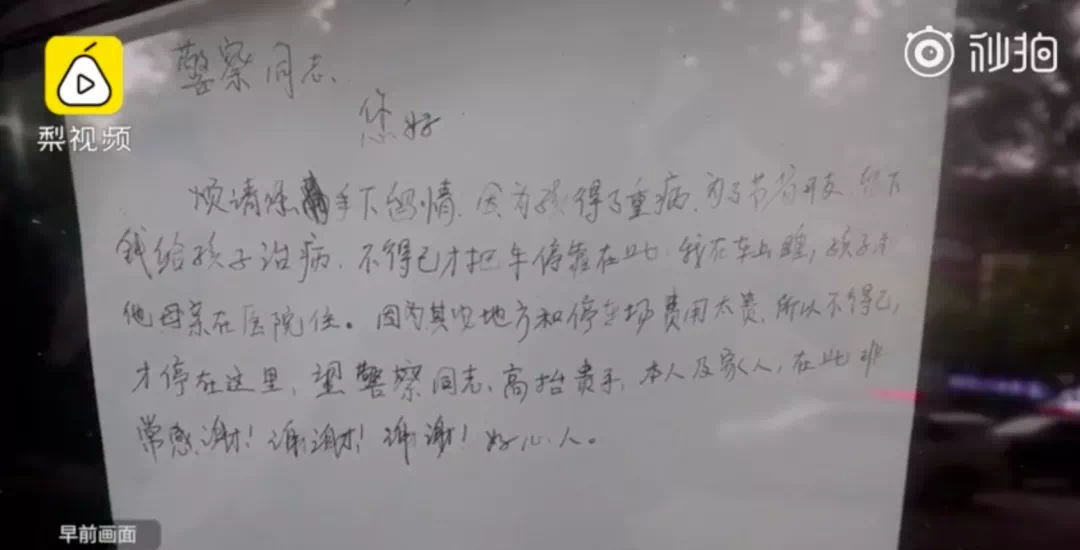 梨视频
秒拍
警察同志.
您好
烦请您手下留情.因为孩得了重病.为了节省开支.留下
钱给孩子治病.不得已才把车停靠在此.我在车上睡,孩子和
他母亲在医院住。因为其它地方和停车场费用太贵.所以不得已,
才停在这里,望警察同志、高抬贵手,本人及家人,在此非
常感谢!谢谢!谢谢!好心人。
早前画面